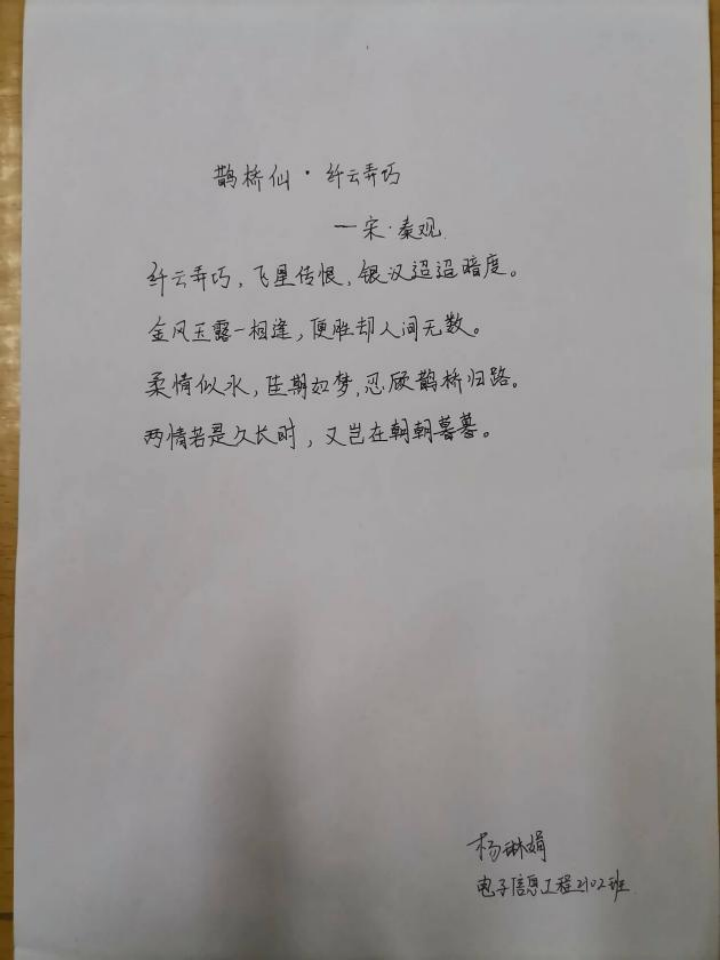 鹊桥仙·纤云弄巧
一宋·秦观
纤云弄巧，飞星传恨，银汉迢迢暗度。
金风玉露一相逢，便胜却人间无数。
柔情似水，佳期如梦，忍顾鹊桥归路。
两情若是久长时，又岂在朝朝暮暮。
杨琳娟
电子信息工程2102班